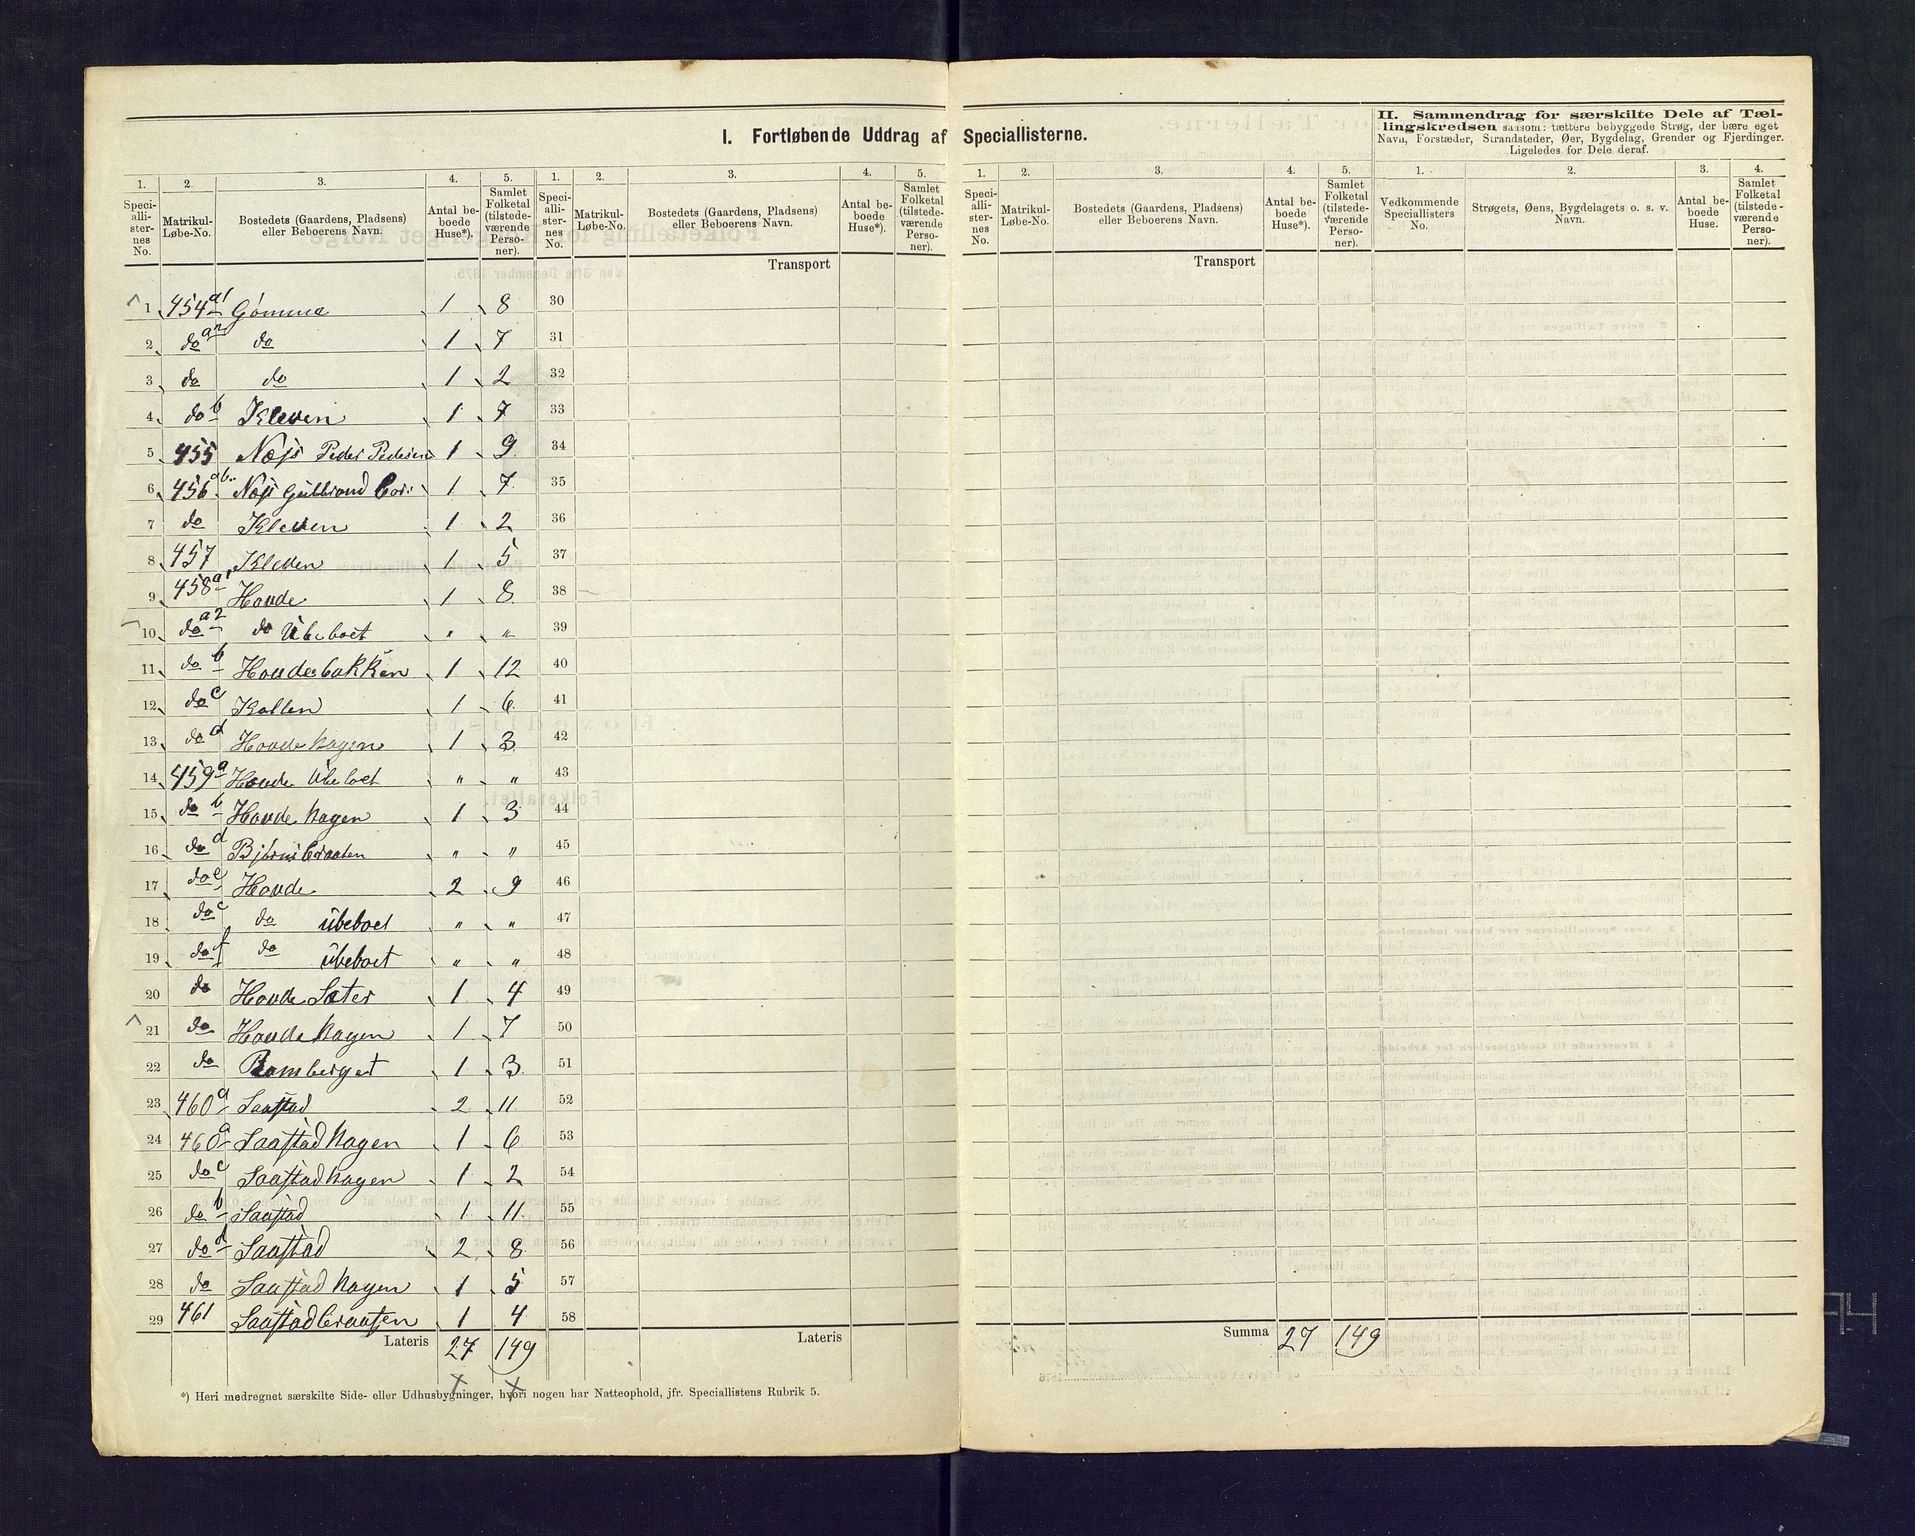 I. Fortløbende Uddrag af Speciallisterne.
II. Sammendrag for særskilte Dele af Tællingskredsen saasom: tættere bebyggede Strøg, der bære eget Navn, Forstæder, Strandsteder, Øer, Bygdelag, Grender og Fjerdinger. Ligeledes for Dele deraf.
1. 2. 3. 4. 5. 1. 2. 3. 4. 5. 1. 2. 3. 4. 5. 1. 2. 3. 4.
Speciallisternes No. Matrikul-Løbe-No. Bostedets (Gaardens, Pladsens) eller Beboerens Navn. Antal beboede Huse*). Samlet Folketal (tilstedeværende Personer).
Speciallisternes No. Matrikul-Løbe-No. Bostedets (Gaardens, Pladsens) eller Beboerens Navn. Antal beboede Huse*). Samlet Folketal (tilstedeværende Personer).
Speciallisternes No. Matrikul-Løbe-No. Bostedets (Gaardens, Pladsens) eller Beboerens Navn. Antal beboede Huse*). Samlet Folketal (tilstedeværende Personer).
Vedkommende Speciallisters No. Strøgets, Øens, Bygdelagets o. s. v. Navn. Antal beboede Huse. Samlet Folketal (tilstedeværende Personer).
Transport Transport
1 454 a1 Gomma 1 8 30
2 do a2 do 1 7 31
3 do do 1 2 32
4 do b Kleven 1 7 33
5 455 Næss Peder Pedersen 1 9 34
6 456 ab Næss Gulbrand 1 7 35
7 do Kleven 1 2 36
8 457 Kleven 1 5 37
9 458 a1 Hovde 1 8 38
10 do a2 do Ubeboet " " 39
11 do b Hovdesbakken 1 12 40
12 do c Kollen 1 6 41
13 do d Hovdehagen 1 3 42
14 459 a Hovde Ubeboet " " 43
15 do b Hovdehagen 1 3 44
16 do d Bjørnsbraaten " " 45
17 do e Hovde 2 9 46
18 do c do Ubeboet " " 47
19 do f do Ubeboet " " 48
20 do Hovde Sæter 1 4 49
21 do Hovdehagen 1 7 50
22 do Ramberget 1 3 51
23 460 a Saastad 2 11 52
24 460 a Saastadhagen 1 6 53
25 do c Saastadhagen 1 2 54
26 do b Saastad 1 11 55
27 do d Saastad 2 8 56
28 do Saastadhagen 1 5 57
29 461 Saastadbraaten 1 4 58
Lateris 27 149 Lateris Summa 27 149
*) Heri medregnet særskilte Side- eller Udhusbygninger, hvori nogen har Natteophold, jfr. Speciallistens Rubrik 5.